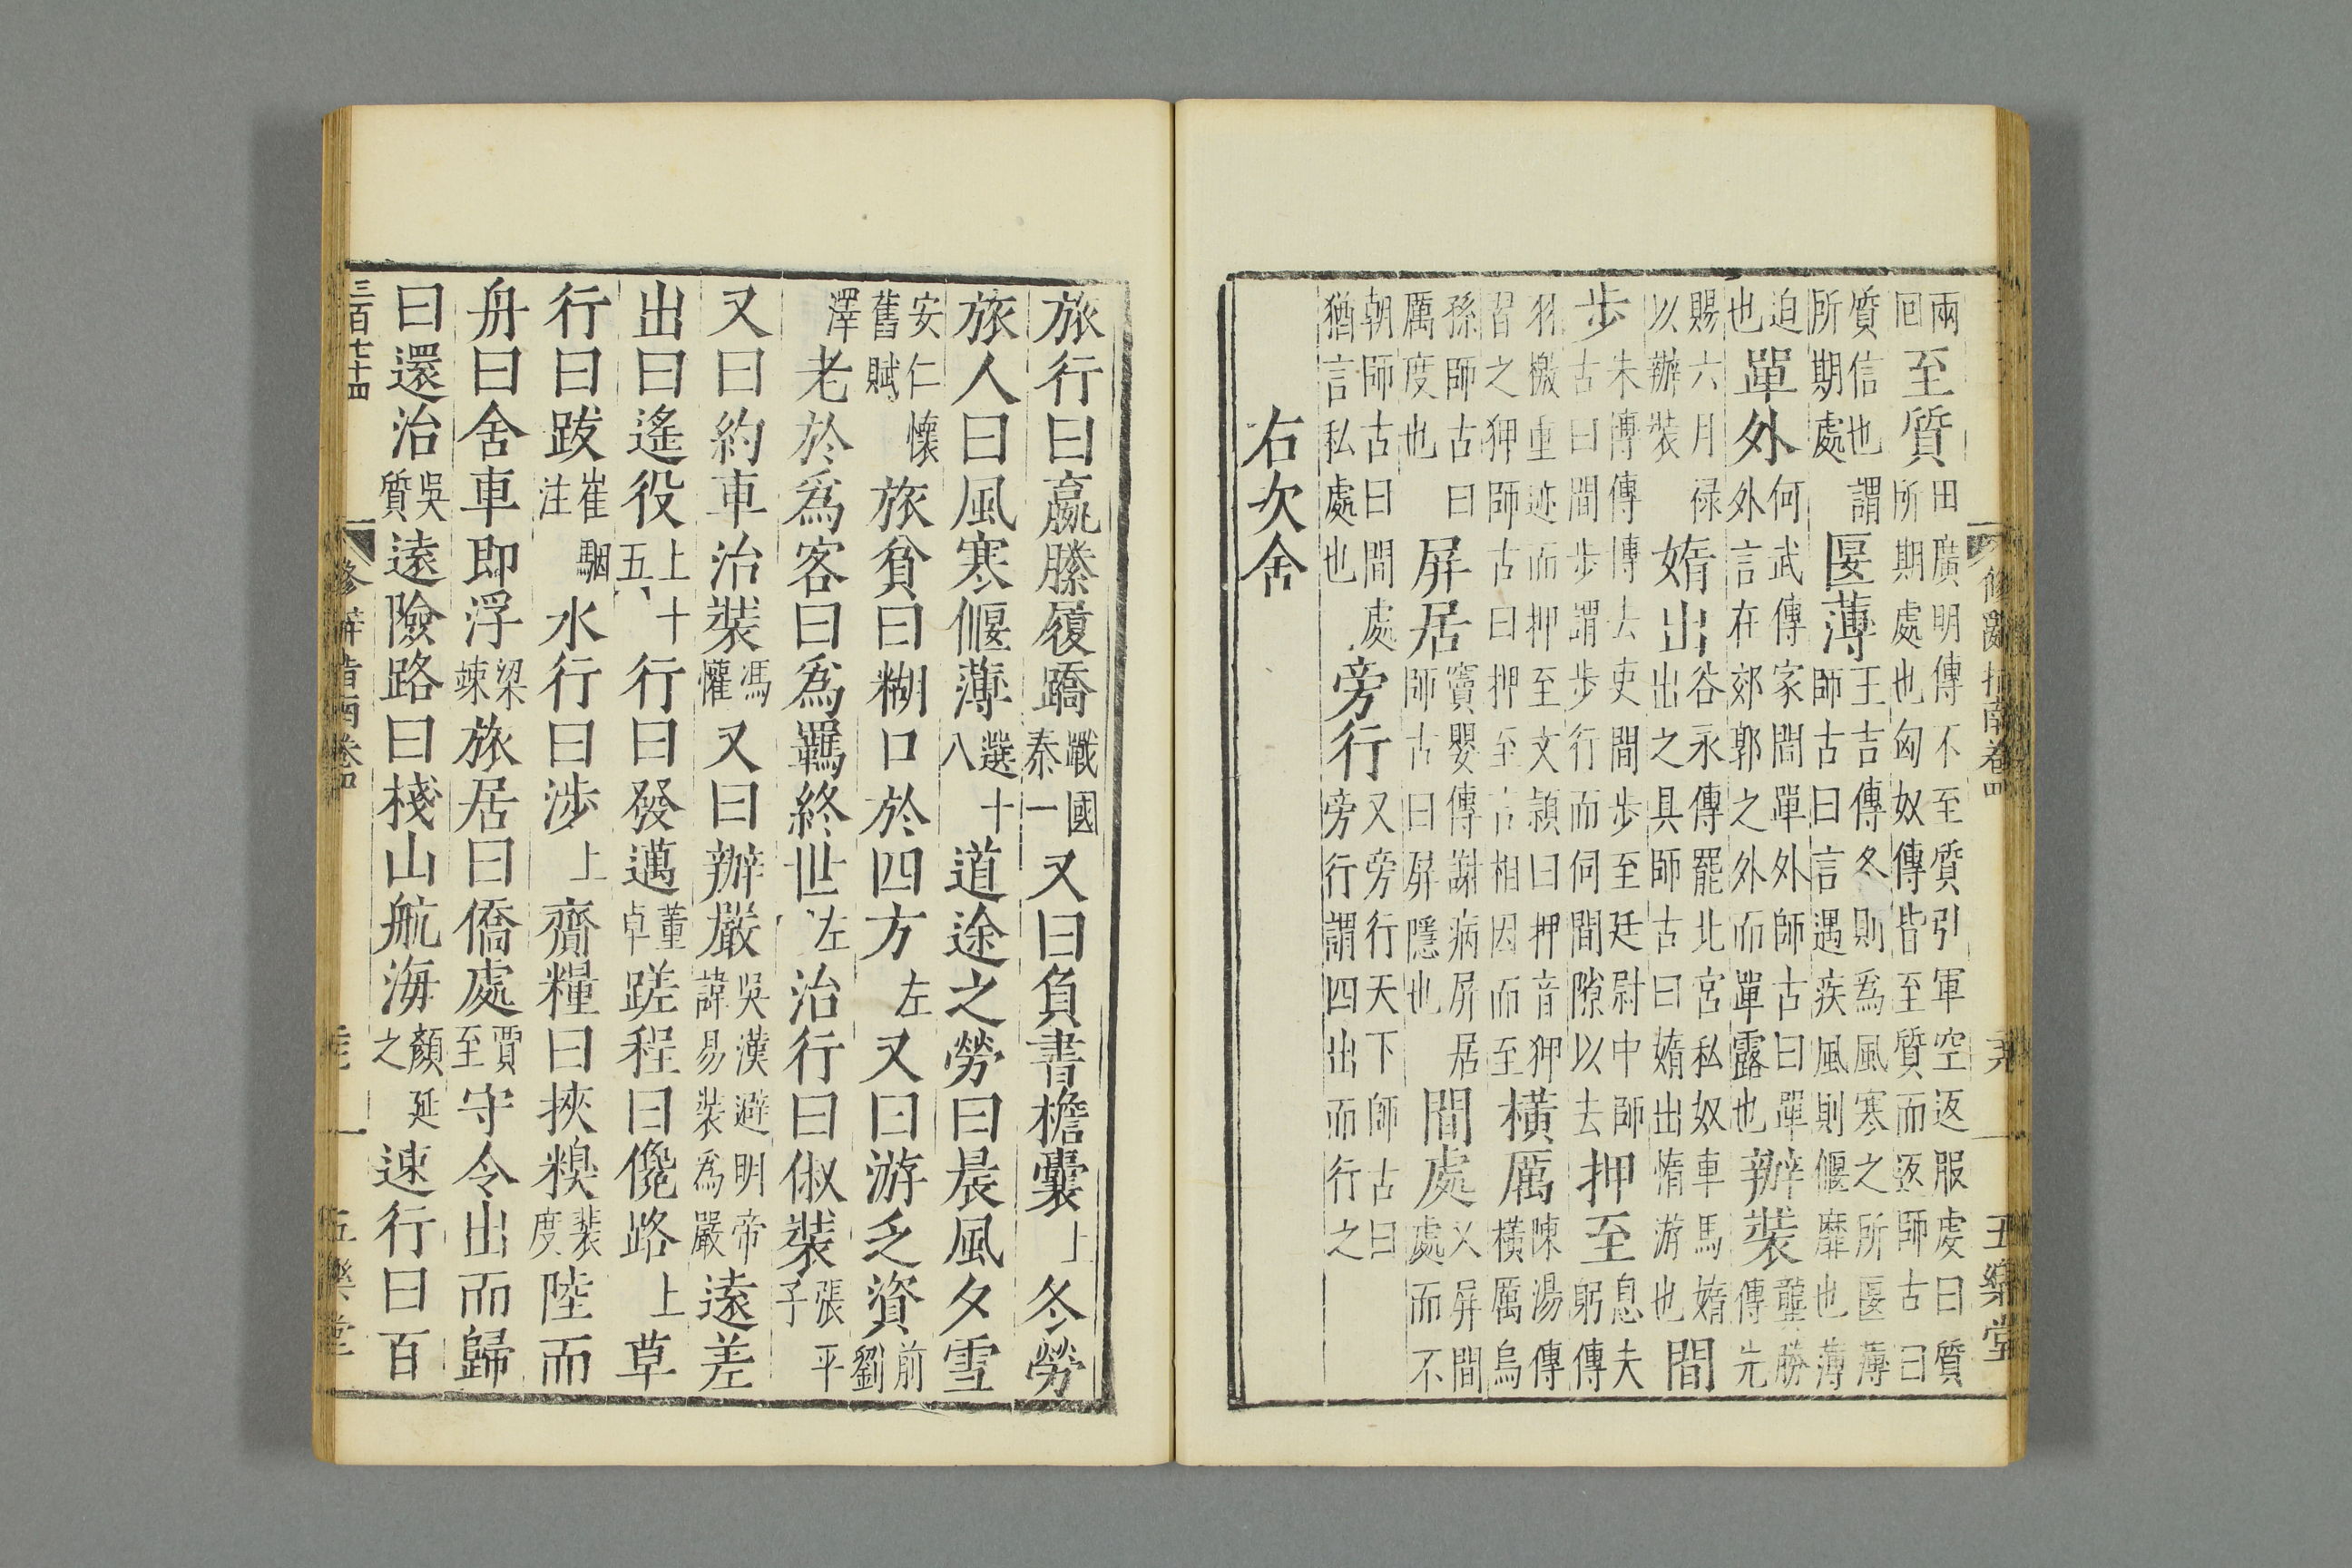 兩回至質田廣明傳不至質引軍空返服虔曰質所期處也匈奴傳皆至質而返師古曰
質信也謂所期處匽薄王吉傳冬則為風寒之所匽薄師古曰言遇疾風則偃靡也薄
迫也單外何武傳家間單外師古曰單外言在郊郭之外而單露也辦裝龔勝傳先
賜六月祿以辦裝媠出谷永傳罷北宮私奴車馬媠出之具師古曰媠出惰游也間
步朱博傳傳博去吏間步至廷尉中師古曰間步謂步行而伺間隙以去押至息夫躬傳
羽檄重迹而押至文穎曰押音狎習之狎師古曰押至言相因而至橫厲陳湯傳橫厲烏
孫師古曰厲度也屏居竇嬰傳謝病屏居師古曰屏隱也間處又屏間處而不
朝師古曰間處猶言私處也旁行又旁行天下師古曰旁行謂四出而行之
右次舍
修辭指南卷四 五樂堂
旅行曰嬴縢履蹻戰國秦一又曰負書檐囊上冬勞
旅人曰風寒偃薄選八十道途之勞曰晨風夕雪
安仁懷舊賦旅貧曰糊口於四方左又曰游乏資前劉
澤老於為客曰為羈終世左治行曰俶裝張平子
又曰約車治裝馮驩又曰辦嚴吳漢避明帝諱易裝為嚴遠差
出曰遙役上十五行曰發邁董卓蹉程曰儳路上草
行曰跋崔駰注水行曰涉上齎糧曰挾糗裴度陸而
舟曰舍車即浮梁竦旅居曰僑處賈至守令出而歸
曰還治吳質遠險路曰棧山航海顏延之速行曰百
三百七十四 修辭指南卷四 五樂堂